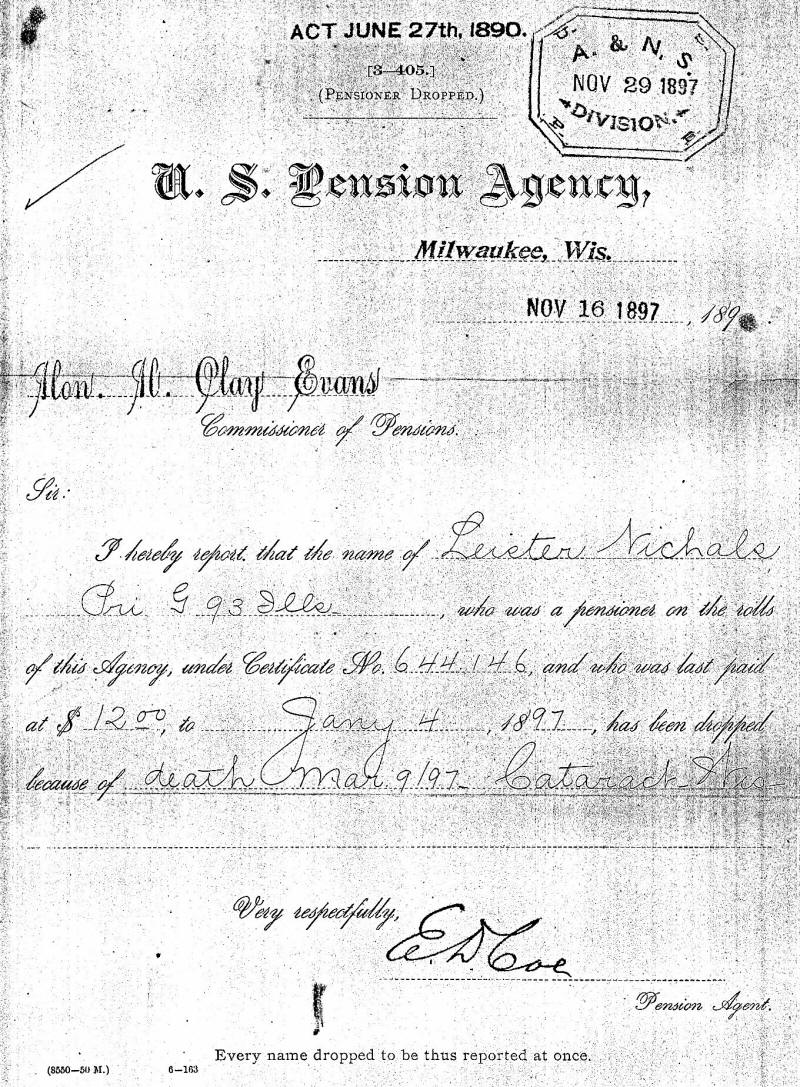 ACT JUNE 27th, 1890.
[3—405.]
(PENSIONER DROPPED.)
U. S.
A. & N. S.
NOV 29 1897
DIVISION.
P. B.
U. S. Pension Agency,
Milwaukee, Wis.
NOV 16 1897, 189
Hon. H. Clay Evans
Commissioner of Pensions.
Sir:
I hereby report that the name of Leister Nichals
Pri G 93 Ills, who was a pensioner on the rolls
of this Agency, under Certificate No. 644.146, and who was last paid
at $ 12 00, to Jany 4, 1897, has been dropped
because of death Mar 9/97 – Catarack Wis –
Very respectfully,
E. D. Coe
Pension Agent.
Every name dropped to be thus reported at once.
(8550—50 M.) 6—163